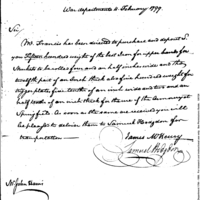 War department 4 February 1799.
Sir,
Mr. Francis has been directed to purchase and deposit to
you Fifteen hundred weight of the best Iron for upper bands for
Muskets to be rolled four and an half inches wide and the
twelfth part of an Inch thick also five hundred weight for
of an inch wide and two and an
half tenths of an inch thick for the use of the Armoury at
Springfield. As soon as the same are received you will
be pleased to deliver them to Samuel Hodgdon for
transportation
James McHenry
Samuel Hodgdon
Mr John Harris